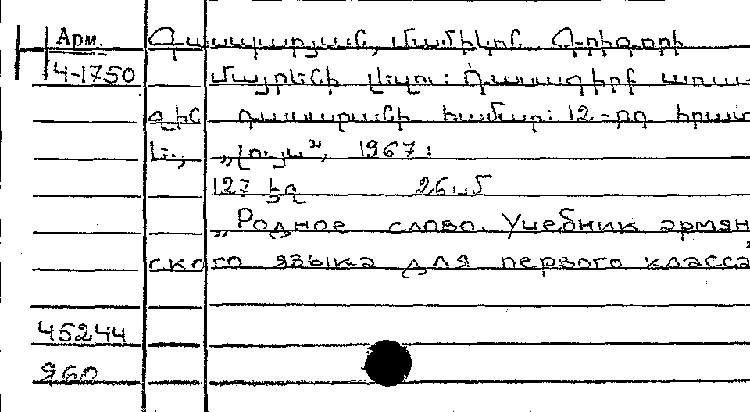 Арм.
4-1750
Գասպարյան, Մամիկոն Գրիգորի
Մայրենի լեզու: Դասագիրք առա
ջին դասարանի համար: 12-րդ հրատ
Ե., „Լույս”, 1967:
127 էջ 26 ս.մ
„Родное слово. Учебник армян
ского языка для первого класса”
45244
960